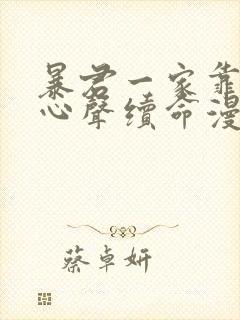 暴君一家靠
心聲續命漫
蔡卓妍